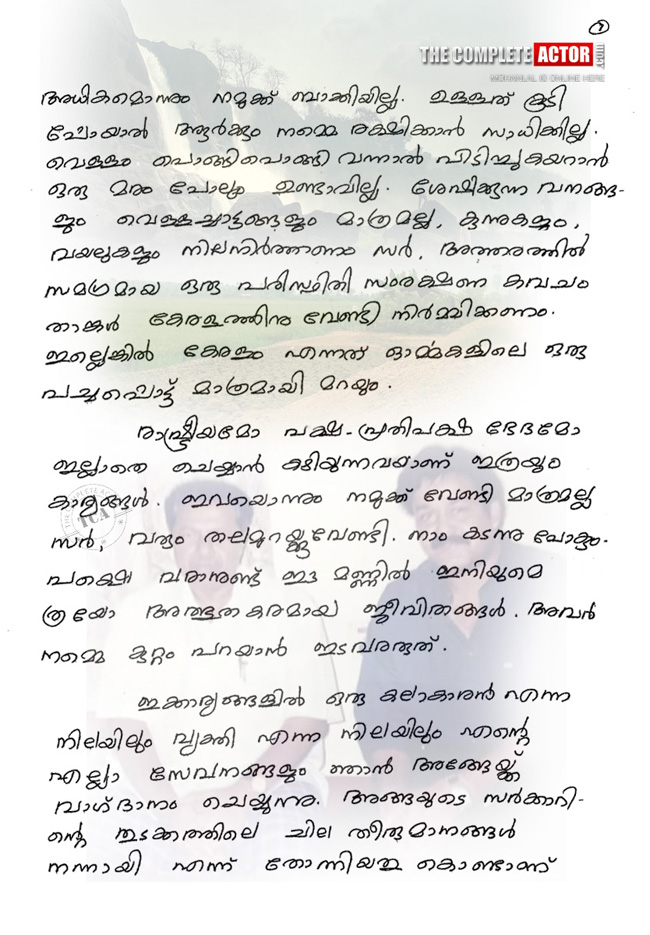 7
THE COMPLETE ACTOR
MOHANLAL IS ONLINE HERE
അധികമൊന്നും നമുക്ക് ബാക്കിയില്ല. ഉള്ളത് കൂടി
പോയാൽ ആർക്കും നമ്മെ രക്ഷിക്കാൻ സാധിക്കില്ല.
വെള്ളം പൊങ്ങിപൊങ്ങി വന്നാൽ പിടിച്ചുകയറാൻ
ഒരു മരം പോലും ഉണ്ടാവില്ല. ശേഷിക്കുന്ന വനങ്ങ-
ളും വെള്ളച്ചാട്ടങ്ങളും മാത്രമല്ല, കുന്നുകളും,
വയലുകളും നിലനിർത്തണം സർ, അത്തരത്തിൽ
സമഗ്രമായ ഒരു പരിസ്ഥിതി സംരക്ഷണ കവചം
താങ്കൾ കേരളത്തിനു വേണ്ടി നിർമ്മിക്കണം.
ഇല്ലെങ്കിൽ കേരളം എന്നത് ഓർമ്മകളിലെ ഒരു
പച്ചപ്പൊട്ട് മാത്രമായി മറയും.
രാഷ്ട്രീയമോ പക്ഷ-പ്രതിപക്ഷ ഭേദമോ
ഇല്ലാതെ ചെയ്യാൻ കഴിയുന്നവയാണ് ഇത്രയും
കാര്യങ്ങൾ. ഇവയൊന്നും നമുക്ക് വേണ്ടി മാത്രമല്ല
സർ, വരും തലമുറയ്ക്കുവേണ്ടി. നാം കടന്നു പോകും.
പക്ഷെ വരാനുണ്ട് ഈ മണ്ണിൽ ഇനിയുമെ
ത്രയോ അത്ഭുതകരമായ ജീവിതങ്ങൾ. അവർ
നമ്മെ കുറ്റം പറയാൻ ഇടവരരുത്.
ഇക്കാര്യങ്ങളിൽ ഒരു കലാകാരൻ എന്ന
നിലയിലും വ്യക്തി എന്ന നിലയിലും എന്റെ
എല്ലാ സേവനങ്ങളും ഞാൻ അങ്ങേയ്ക്ക്
വാഗ്ദാനം ചെയ്യുന്നു. അങ്ങയുടെ സർക്കാറി-
ന്റെ തുടക്കത്തിലെ ചില തീരുമാനങ്ങൾ
നന്നായി എന്ന് തോന്നിയതു കൊണ്ടാണ്
TCA